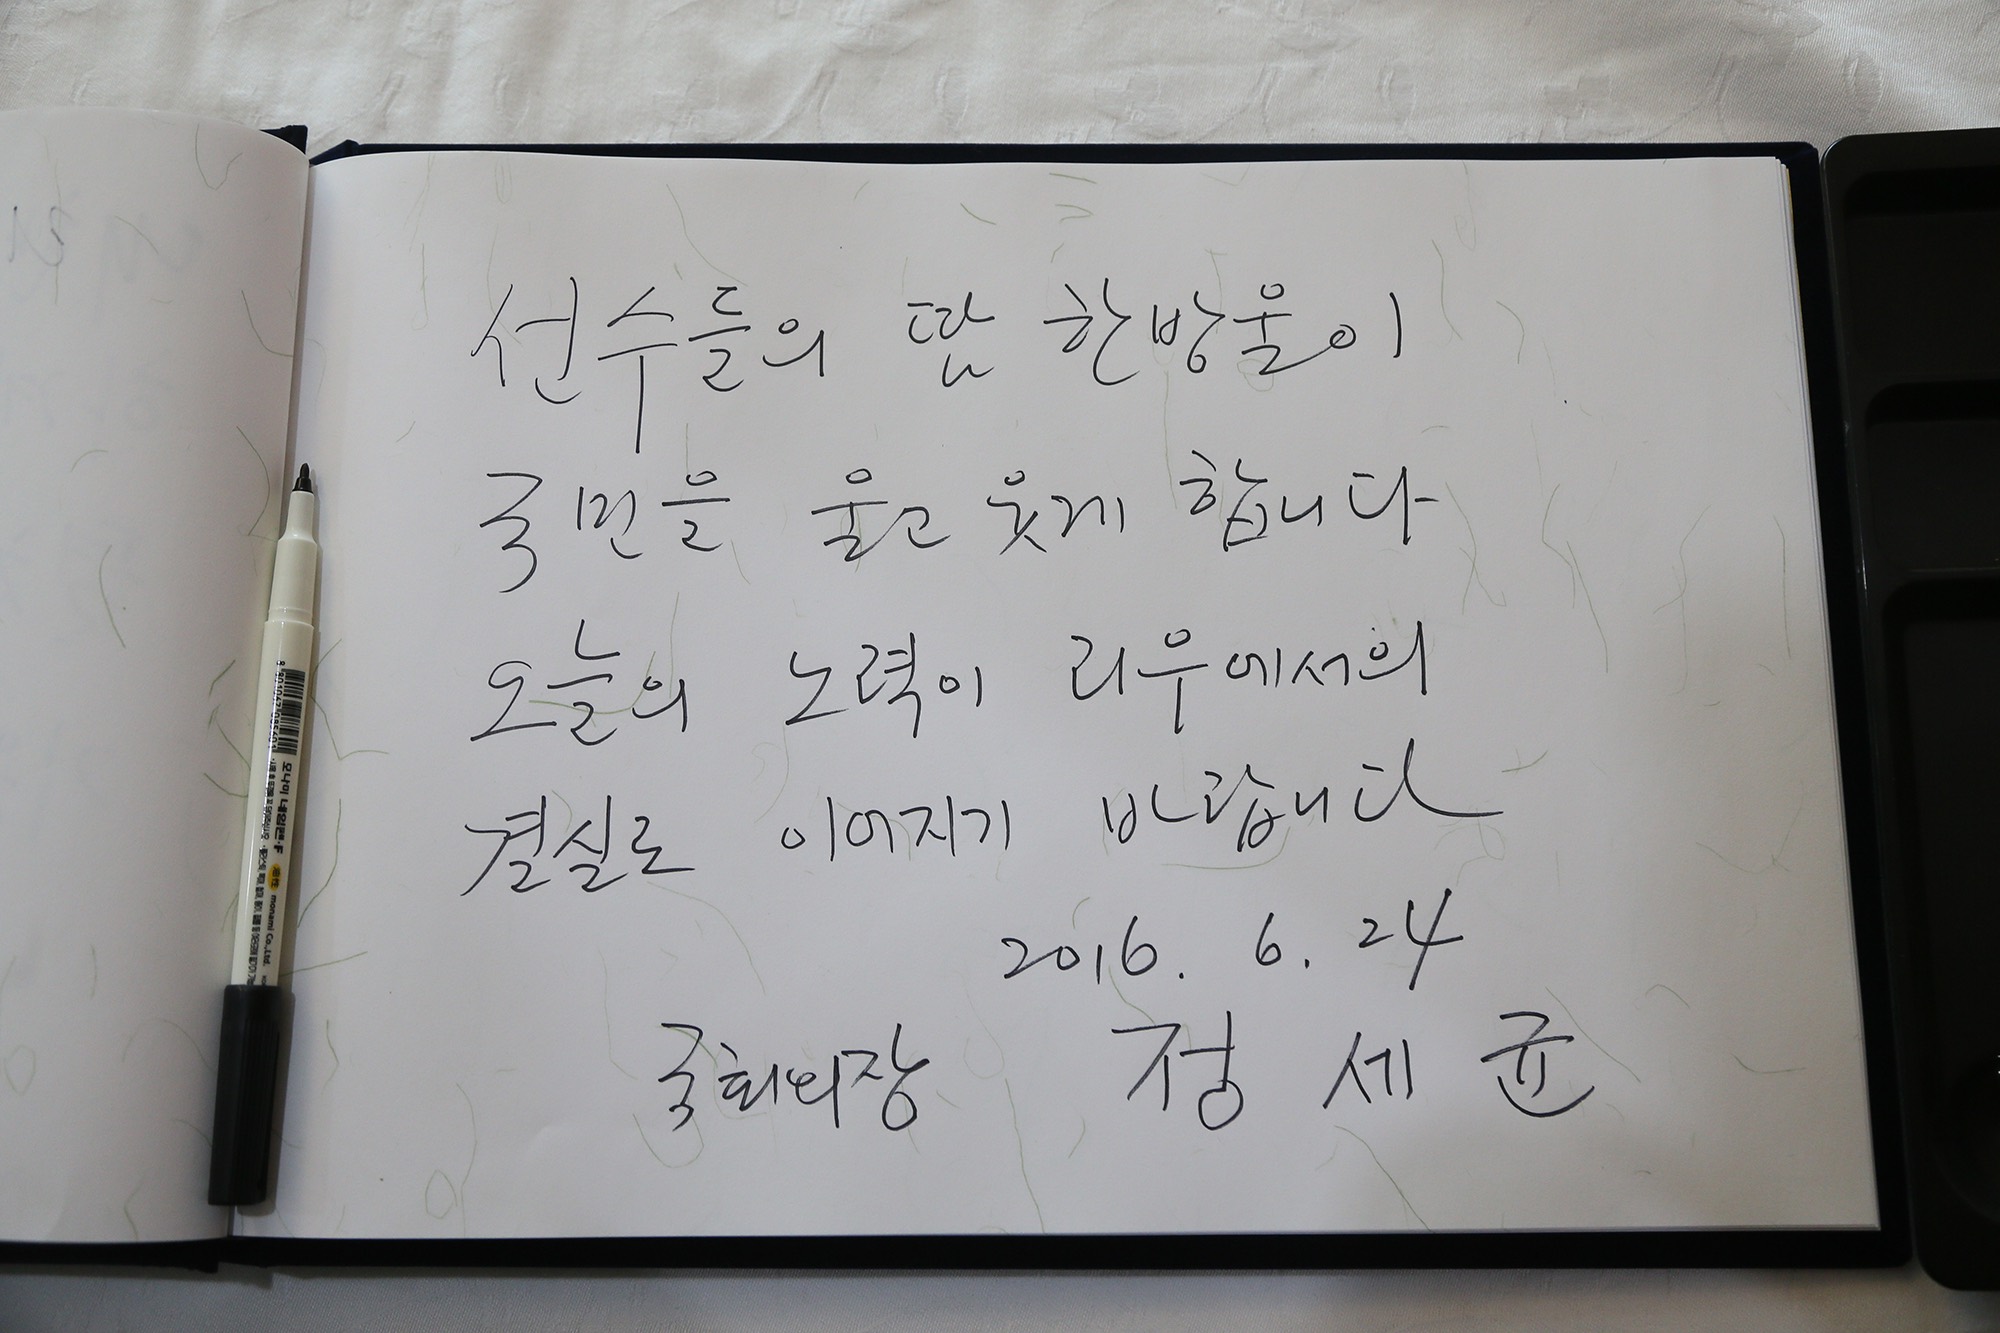 선수들의 땀 한방울이
국민을 울고 웃게 합니다
오늘의 노력이 리우에서의
결실로 이어지기 바랍니다
2016. 6. 24
국회의장 정 세 균
모나미 네임펜·F
油性 monami Co.,Ltd.